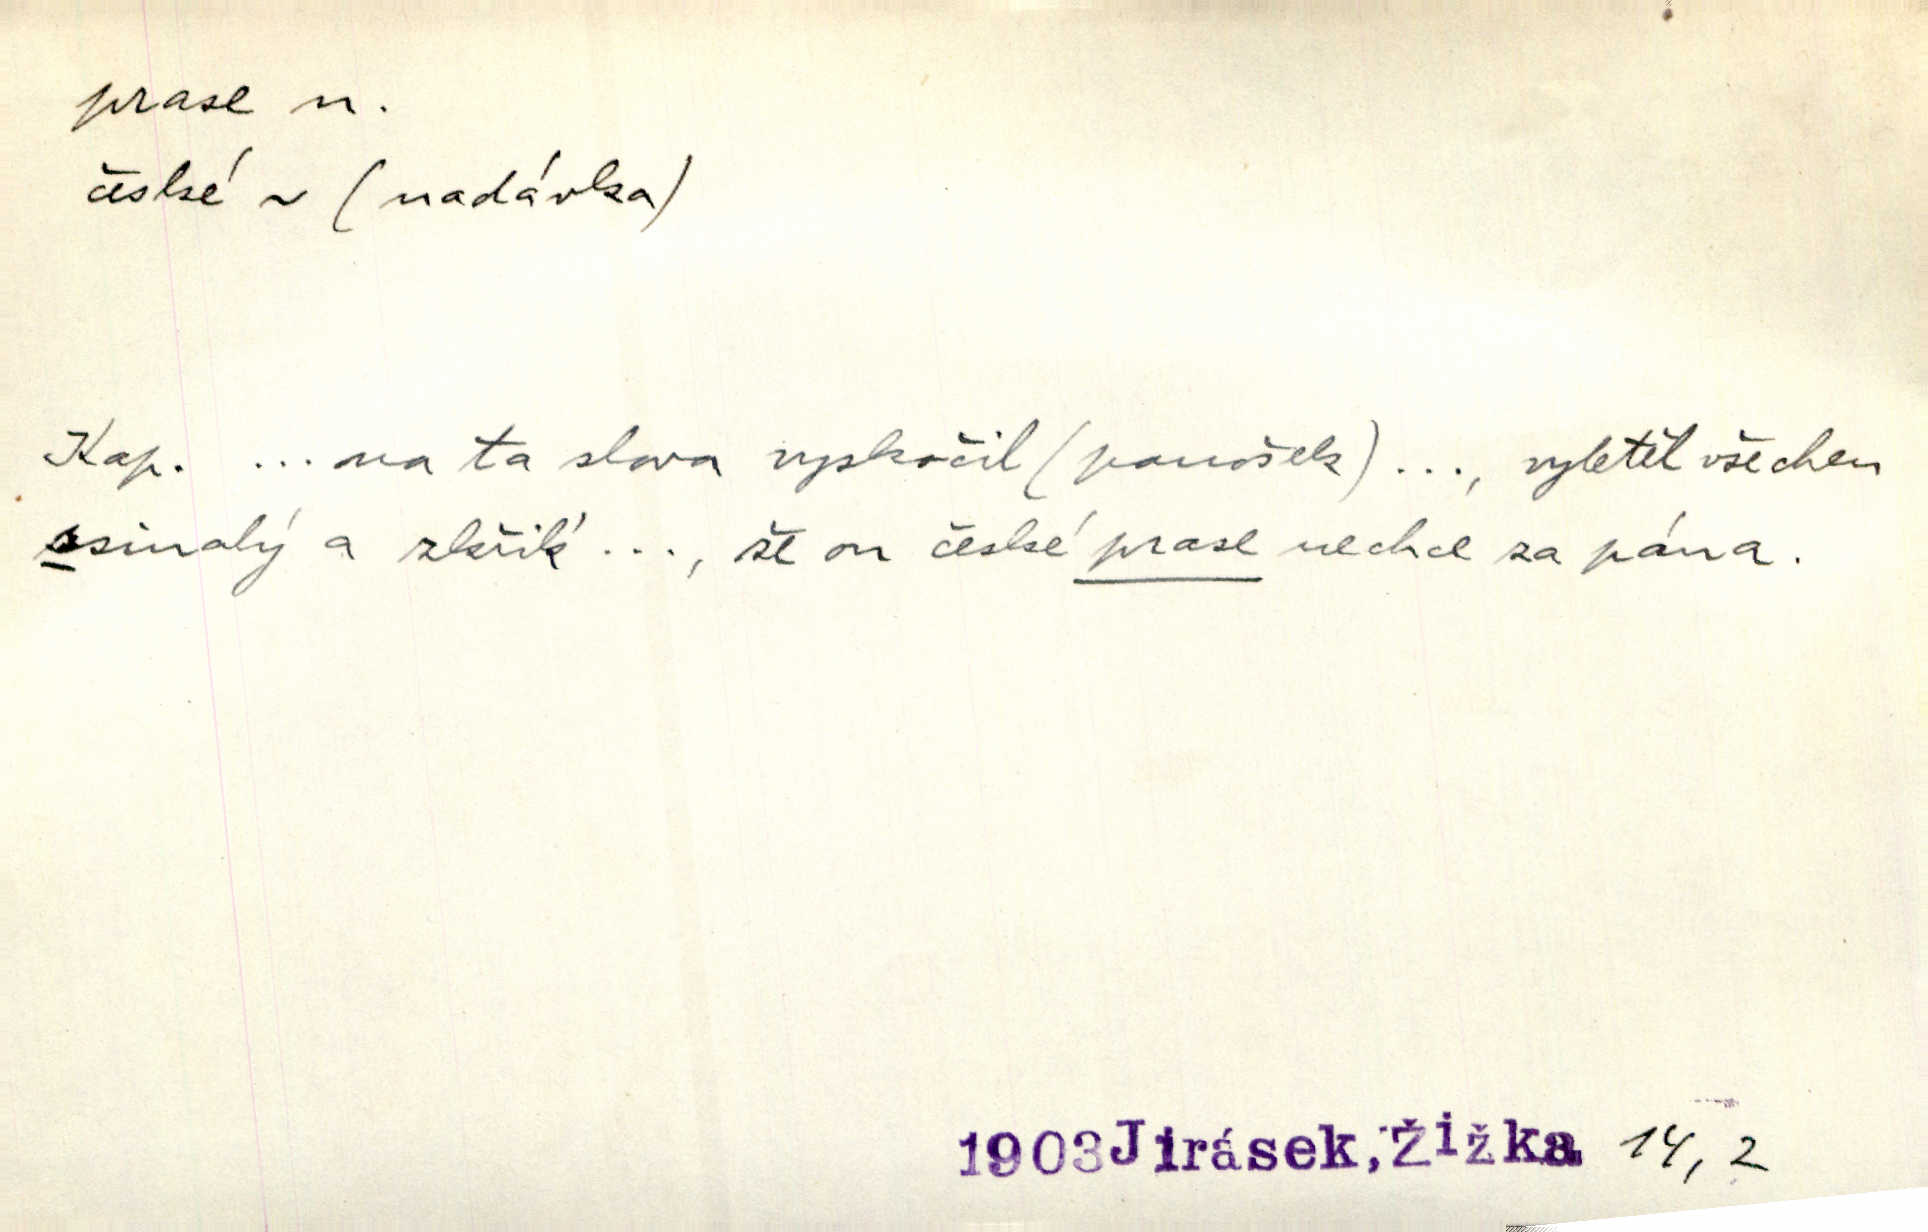 prase n.
české ~ (nadávka)
Kap. ... na ta slova vyskočil (panošek) ..., vyletěl všechen
ssinalý a zkřik' ..., že on české prase nechce za pána.
1903 Jirásek, Žižka 14, 2